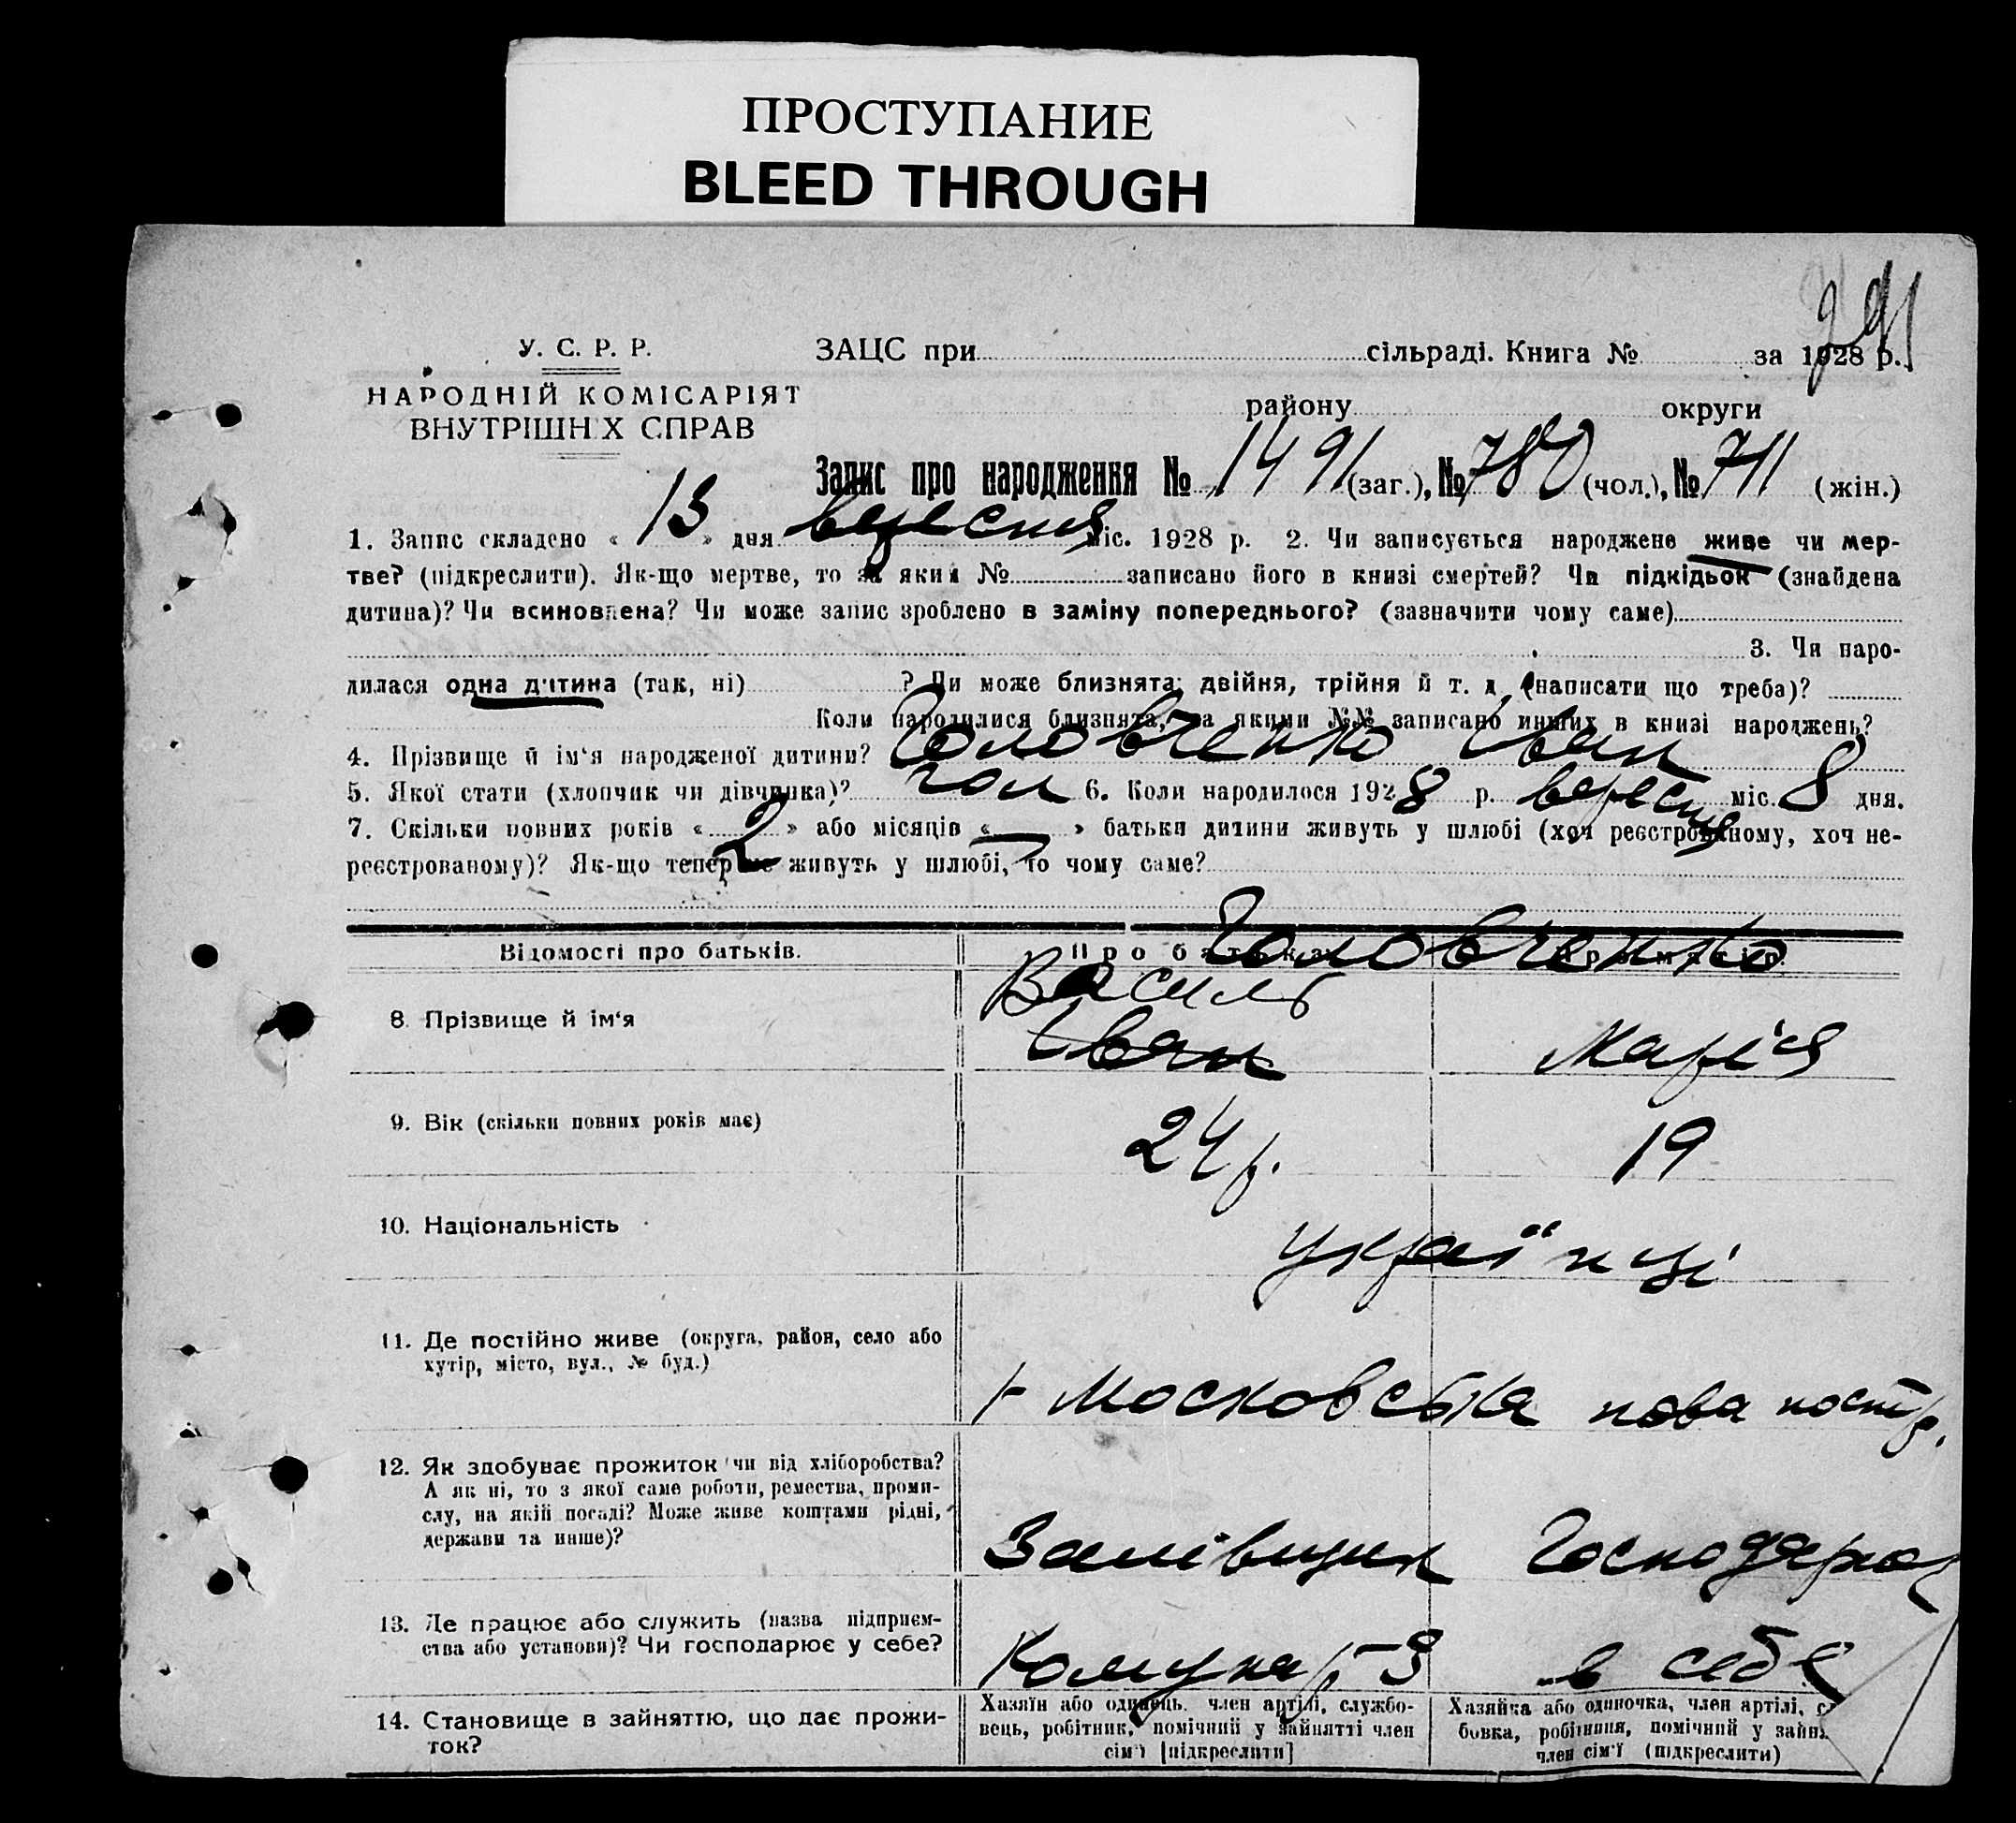 ПРОСТУПАНИЕ
BLEED THROUGH
291
У. С. Р. Р.
ЗАЦС при сільраді. Книга № за 1928 р.
НАРОДНІЙ КОМІСАРІЯТ
ВНУТРІШНІХ СПРАВ
району округи
Запис про народження № 1491 (заг.), № 780 (чол.), № 711 (жін.)
1. Запис складено « 13 » дня вересня міс. 1928 р. 2. Чи записується народжене живе чи мер-
тве? (підкреслити). Як-що мертве, то за яким № записано його в книзі смертей? Чи підкідьок (знайдена
дитина)? Чи всиновлена? Чи може запис зроблено в заміну попереднього? (зазначити чому саме)
3. Чи наро-
дилася одна дитина (так, ні) ? Чи може близнята: двійня, трійня й т. д. (написати що треба)?
Коли народилися близнята, за якими №№ записано инших в книзі народжень?
4. Прізвище й ім'я народженої дитини? Головченко Іван
5. Якої стати (хлопчик чи дівчинка)? чол 6. Коли народилося 1928 р. вересня міс. 8 дня.
7. Скільки повних років « 2 » або місяців « — » батьки дитини живуть у шлюбі (хоч реєстрованому, хоч не-
реєстрованому)? Як-що тепер не живуть у шлюбі, то чому саме?
Головченко
Відомості про батьків. Про батька Про матір.
Василь
8. Прізвище й ім'я Іван Марія
9. Вік (скільки повних років має) 24 р. 19
10. Національність українці
11. Де постійно живе (округа, район, село або
хутір, місто, вул., № буд.)
Московська нова постр.
12. Як здобуває прожиток чи від хліборобства?
А як ні, то з якої саме роботи, ремества, проми-
слу, на якій посаді? Може живе коштами рідні,
держави та инше)?
Залівщик Господарка
13. Де працює або служить (назва підприєм-
ства або установи)? Чи господарює у себе?
Комунар-З в себе
14. Становище в зайняттю, що дає прожи-
ток?
Хазяїн або одинець, член артілі, службо-
вець, робітник, помічний у зайнятті член
сім'ї [підкреслити]
Хазяйка або одиночка, член артілі,
бовка, робітниця, помічний у зайн
член сім'ї (підкреслити)